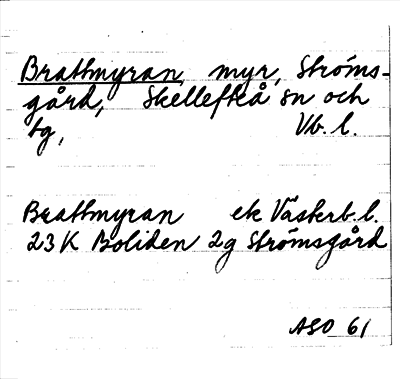 Brattmyran, myr, Ströms-
gård, Skellefteå sn och
tg, Vb. l.
Brattmyran ek Västerb. l.
23 K Boliden 2g Strömsgård
ASO 61